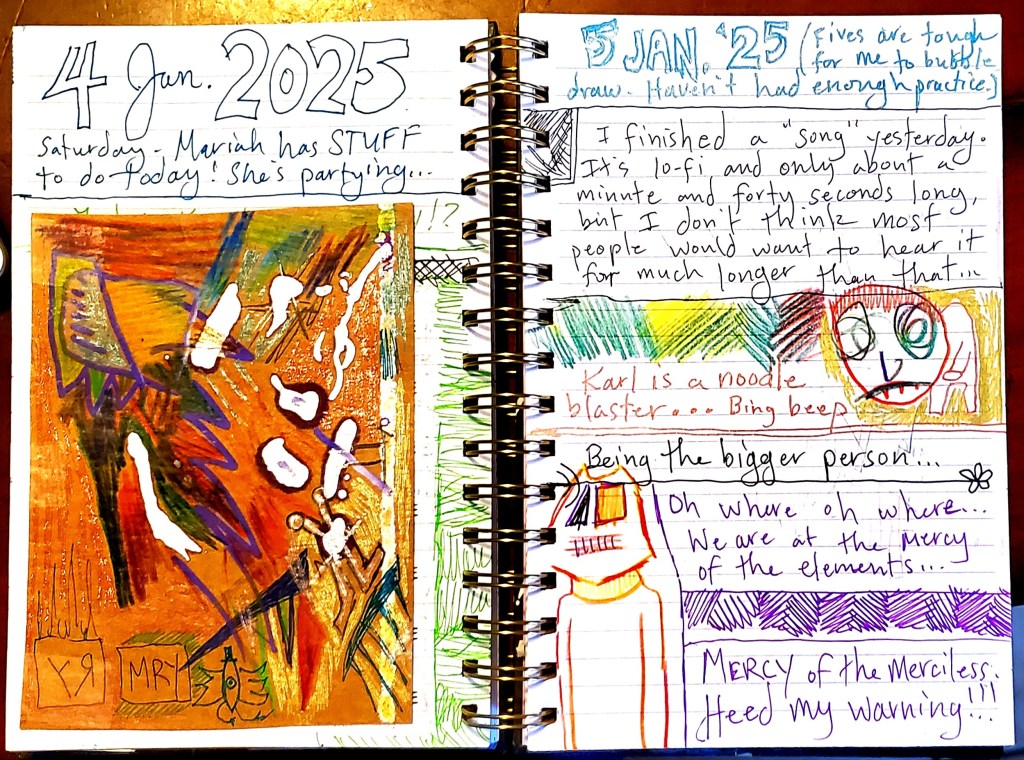 4 Jan. 2025
Saturday - Mariah has STUFF
to do today! She's partying...
MRY
5 JAN. '25 (Fives are tough
for me to bubble
draw. Haven't had enough practice.)
I finished a "song" yesterday.
It's lo-fi and only about a
minute and forty seconds long,
but I don't think most
people would want to hear it
for much longer than that...
Karl is a noodle
blaster... Bing beep
Being the bigger person...
Oh where oh where...
We are at the mercy
of the elements...
MERCY of the Merciless.
Heed my warning!!!